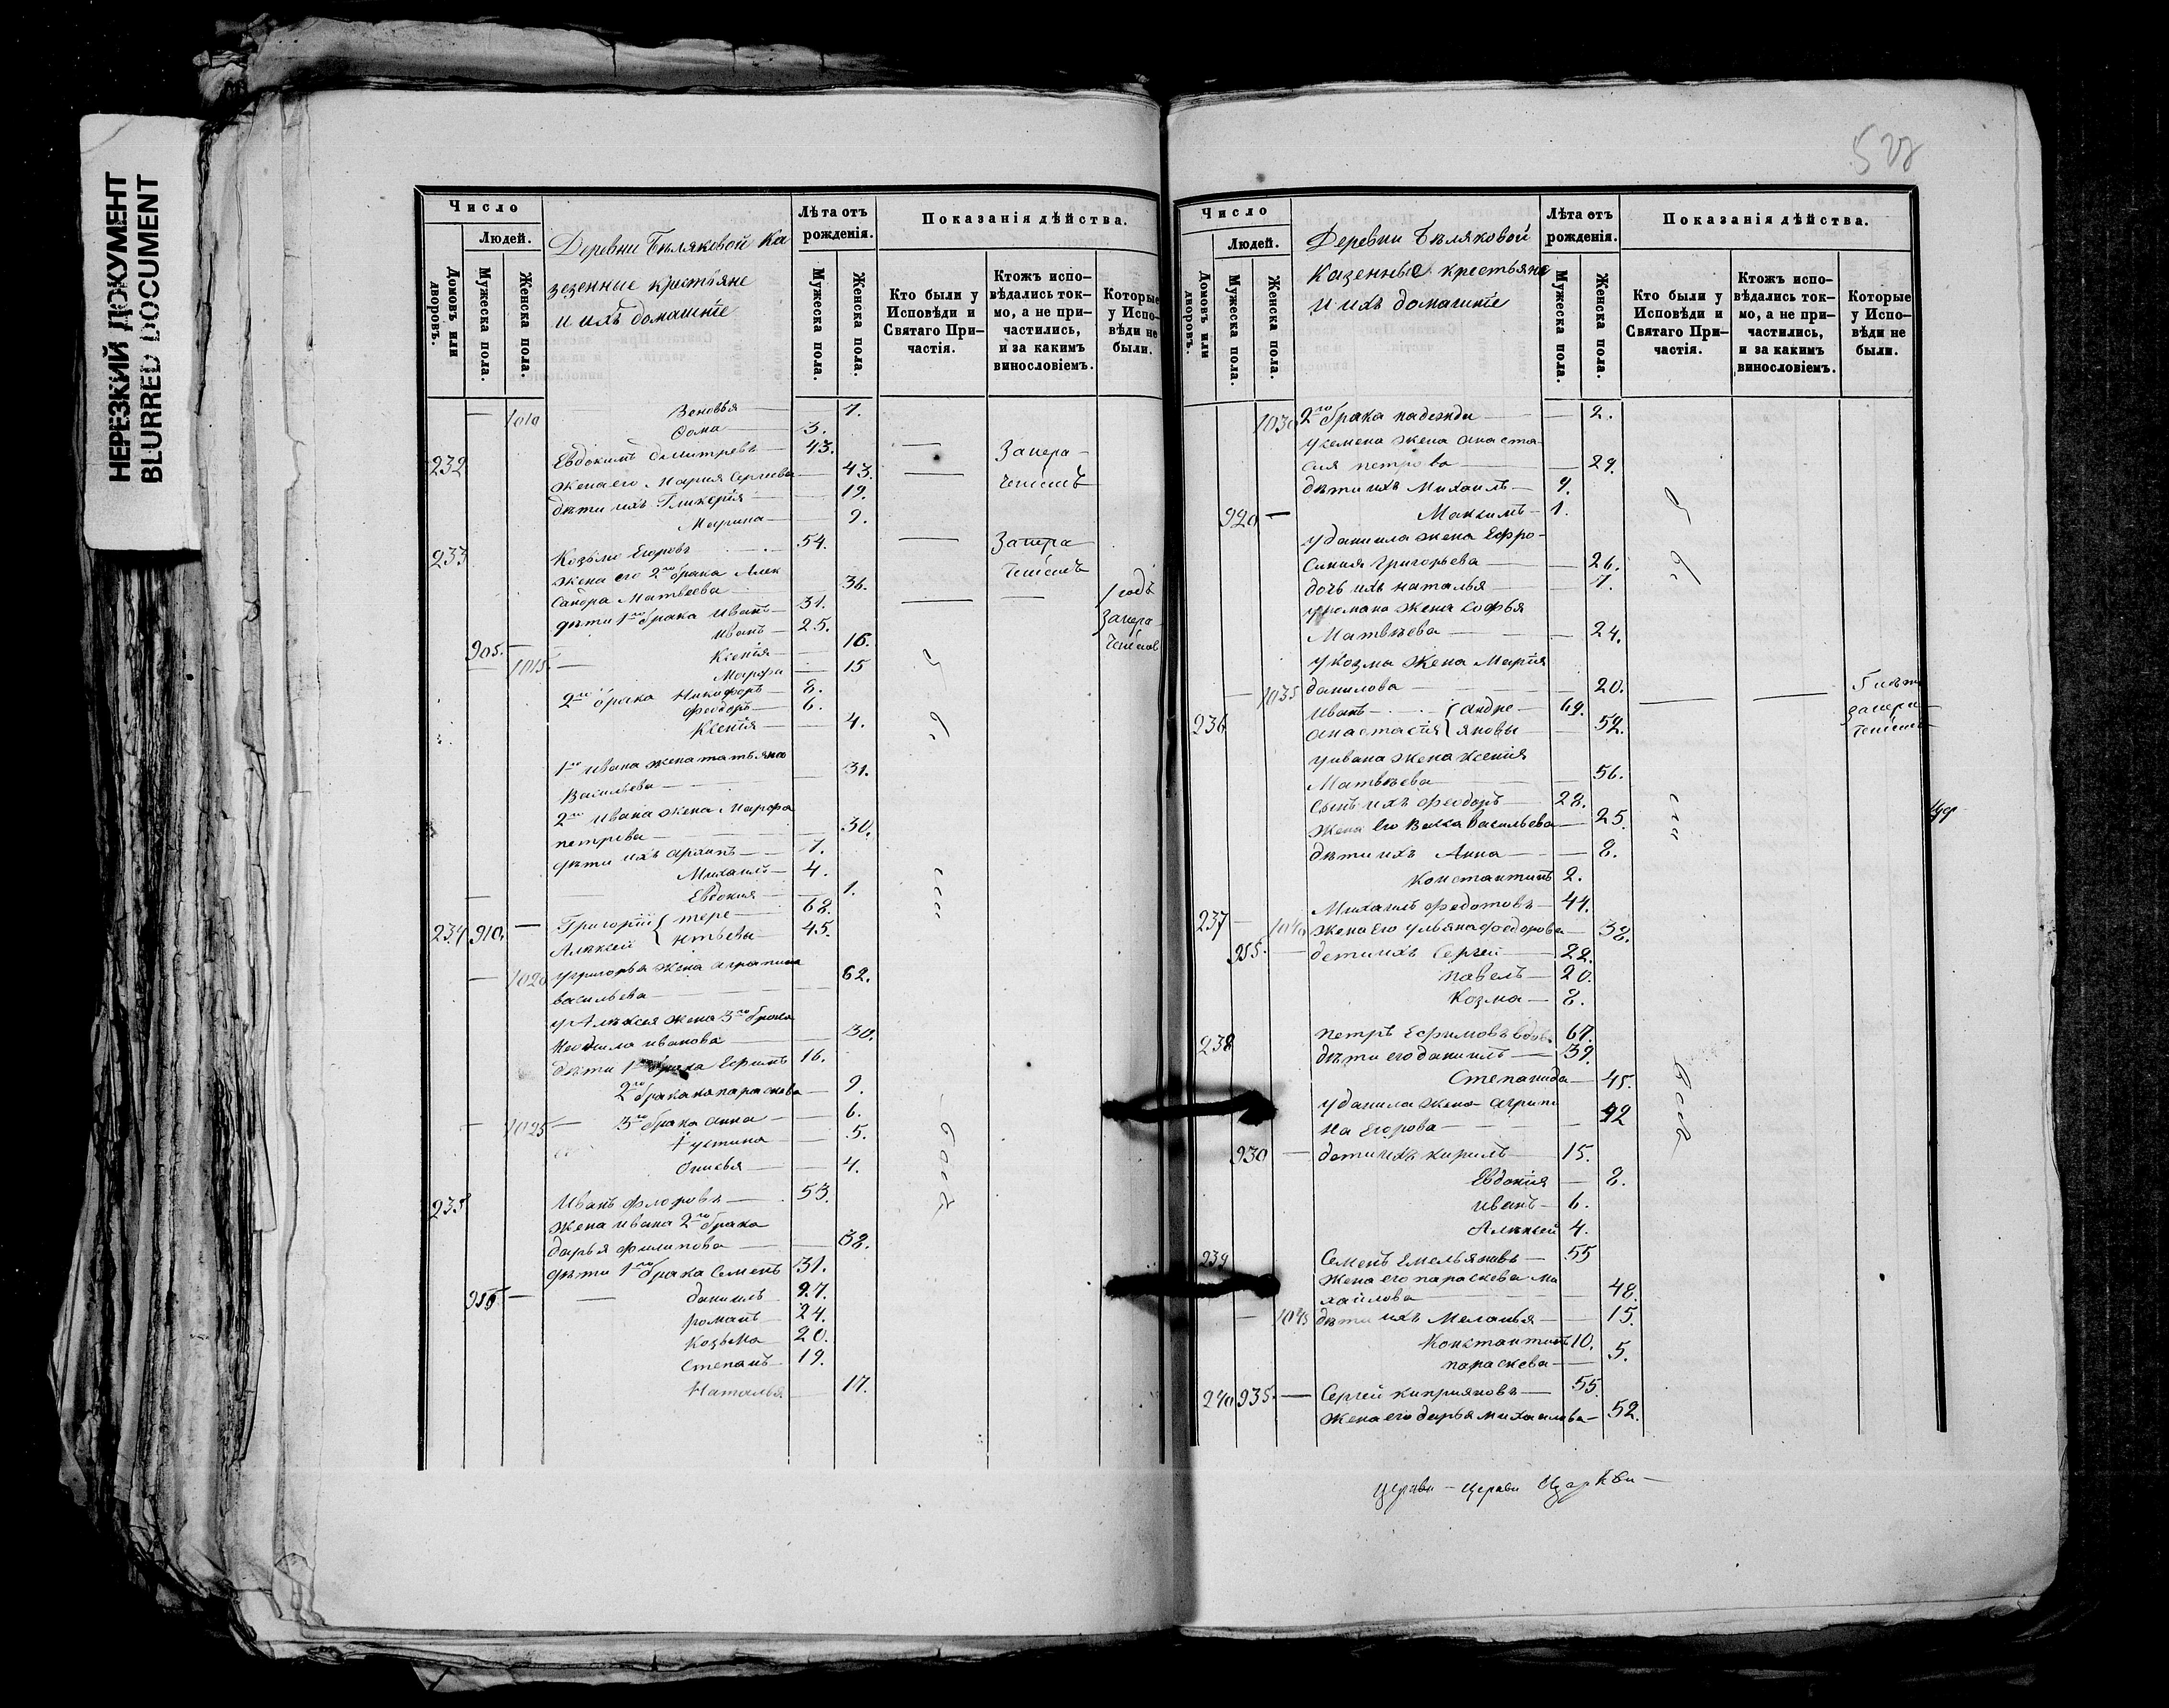 НЕРЕЗКИЙ ДОКУМЕНТ
BLURRED DOCUMENT
Число
Людей.
Домовъ или дворовъ.
Мужеска пола.
Женска пола.
Деревни Бѣляковой Ка
зезенные крестьяне
и ихъ домашніе
Лѣта отъ рожденія.
Мужеска пола.
Женска пола.
Показанія дѣйства.
Кто были у Исповѣди и Святаго При-
частія.
Ктожъ испо-
вѣдались ток-
мо, а не при-
частились,
и за какимъ
винословіемъ.
Которые
у Испо-
вѣди не
были.
— 1010 Зеновья — 7.
Фома — 3.
232 Евдокимъ Дмитревъ — 43. — Запера-
жена его Мария Сергиева — 43. — тенiемъ
дѣти ихъ Гликерія — 19.
Марина — 9.
233 Козьма Егоровъ 54. — Запера
жена его 2го брака Алек тенiемъ
сандра Матвеева 36. 1 годъ
дѣти 1го брака Иванъ — 31. — — Запера
905. — Иванъ — 25.
Ксенія — 16.
— 1015. — Марфа — 15
2го брака Никифоръ — 8.
Феодоръ — 6.
Ксенія — 4.
1го Ивана жена татьяна
Васильева — 31.
2го Ивана жена Марфа
петрова — 30.
дѣти ихъ Архипъ — 7.
Михаилъ — 4.
— Евдокия — 1.
234 910. — Григорій { тере — 68.
Алексей { нтьевы — 45.
— 1020 у григорья жена аграпина
васильева — 62.
у Алексея жена 3го брака
иванова — 30.
дѣти 1го брака Ефимъ 16.
2го брака параскева — 9.
— 1025 — 3го брака анна — 6.
устина — 5.
4.
235 Иванъ флоровъ — 53.
жена ивана 2го брака
дарья филипова — 38.
дѣти 1го брака Семенъ 31.
915 — — даниилъ 27.
романъ — 24.
Козьма — 20.
Степанъ — 19.
Наталья — 17.
были
528
Число
Людей.
Домовъ или дворовъ.
Мужеска пола.
Женска пола.
Деревни Бѣляковой
казенные крестьяне
и ихъ домашніе
Лѣта отъ рожденія.
Мужеска пола.
Женска пола.
Показанія дѣйства.
Кто были у Исповѣди и Святаго При-
частія.
Ктожъ испо-
вѣдались ток-
мо, а не при-
частились,
и за какимъ
винословіемъ.
Которые
у Испо-
вѣди не
были.
1030 2го брака надежда — 2.
у семена жена анаста-
сия петрова — 29.
дѣти ихъ Михаилъ — 9.
920 — Максимъ — 1.
у даниила жена Ефро-
синия Григорьева — 26.
дочь ихъ наталья — 7.
у романа жена софья
Матвѣева — 24.
у козмы жена Марія
— 1035 данилова — 20. 5 лѣтъ
236 Иванъ — { андре — 69. — — запера-
анастасия { яновы — 52. тенiемъ
у ивана жена ксенія
Матвѣева — 56.
сынъ ихъ феодоръ — 28.
жена его Васса васильева — 25.
дѣти ихъ Анна — 8.
Константинъ 2.
237 — Михаилъ федотовъ — 44.
1040 жена его ульяна федорова — 38.
925. — дети ихъ Сергей — 22.
павелъ — 20.
Козма — 8.
238 петръ Ефимовъ вдовъ 67.
дѣти его даниилъ — 39
Степанида — 45.
у данила жена агрипи
на Егорова — 42
930 — дети ихъ кирилъ — 15.
Евдокия — 8.
иванъ — 6.
Алексей 4.
239 Семенъ Емельяновъ — 55
жена его параскева ми
хайлова — 48.
— 1045 дѣти ихъ Меланья — 15.
Константинъ 10.
параскева — 5.
240 935. — Сергей киприяновъ — 55.
жена его дарья михаилова — 52.
были
Церкви — Церкви Церкви —